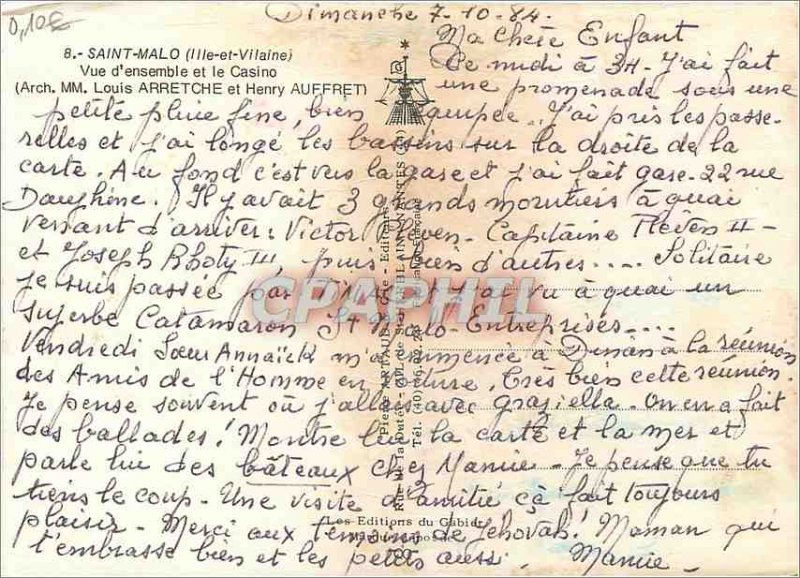 0,10€
Dimanche 7-10-84.
8.- SAINT-MALO (Ille-et-Vilaine)
Vue d'ensemble et le Casino
(Arch. MM. Louis ARRETCHE et Henry AUFFRET)
Ma Chère Enfant
Ce midi à 3H- J'ai fait
une promenade sous une
petite pluie fine, bien équipée. J'ai pris les passe-
relles et j'ai longé les bassins sur la droite de la
carte. Au fond c'est vers la gare et j'ai fait gare-22 rue
Dauphine. Il y avait 3 grands morutiers à quai
venant d'arriver : Victor Pleven- Capitaine Pleven II-
et Joseph Rhoty III, puis bien d'autres.... Solitaire
je suis passée par et j'ai vu à quai un
superbe Catamaran St Malo-Entreprises....
Vendredi Sœur Annaïck m'a emmenée à Dinan à la réunion
des Amis de l'Homme en . Très bien cette réunion.
Je pense souvent où j'allais avec graziella. on en a fait
des ballades! Montre lui la carte et la mer et
parle lui des bâteaux chez Mamie- Je pense que tu
tiens le coup- Une visite d'amitié çà fait toujours
plaisir- Merci aux témoins de Jehovah! Maman qui
t'embrasse bien et les petits aussi. Mamie-
CPAPHIL
Pierre ARTAUD
Rue de la
Tél. (40)
Les Editions du Gabier